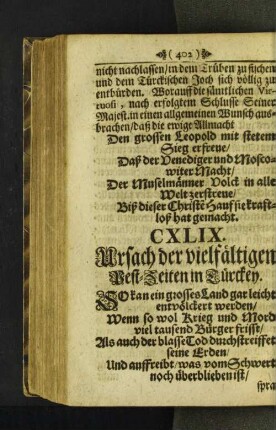 ( 402 )
nicht nachlassen / in dem Trüben zu fischen
und dem Türckischen Joch sich völlig zu
entbürden. Worauff die sämtlichen Vir-
tuosi, nach erfolgtem Schlusse Seiner
Majest. in einen allgemeinen Wunsch aus-
brachen / daß die ewige Allmacht
Den grossen Leopold mit stetem
Sieg erfreue /
Daß der Venediger und Mosco-
witer Macht /
Der Muselmänner Volck in alle
Welt zerstreue /
Biß dieser Christē Hauf sie krafft-
loß hat gemacht.
CXLIX.
Ursach der vielfältigen
Pest-Zeiten in Türckey.
SO kan ein grosses Land gar leicht
entvölckert werden /
Wenn so wol Krieg und Mord
viel tausend Bürger frisst /
Als auch der blasse Tod durchstreiffet
seine Erden /
Und auffreibt / was vom Schwert
noch überblieben ist /
spra